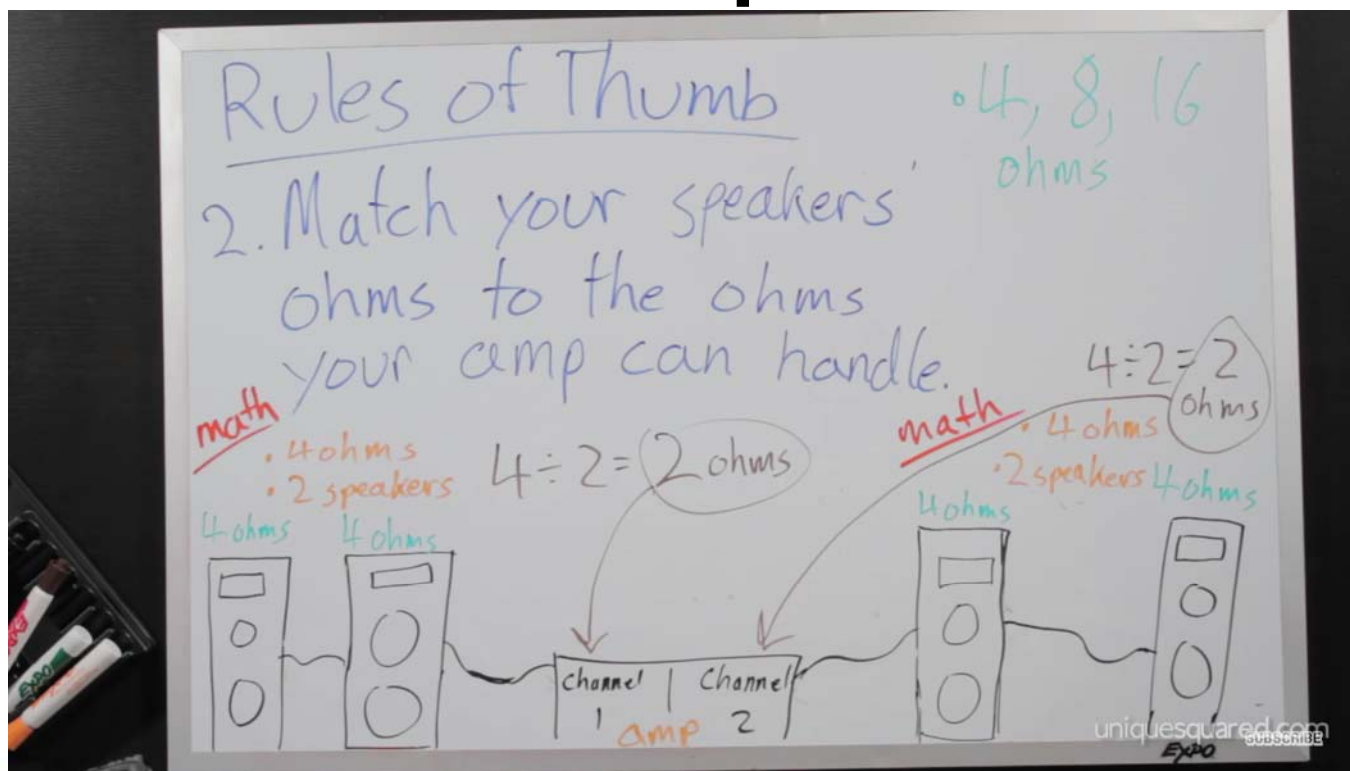 Rules of Thumb
• 4, 8, 16
ohms
2. Match your speakers'
ohms to the ohms
your amp can handle.
4÷2=2
ohms
math
• 4 ohms
• 2 speakers
4÷2= 2 ohms
math
• 4 ohms
• 2 speakers
4 ohms
4 ohms
4 ohms
4 ohms
Channel
1
Channel
2
amp
EXPO
uniquesquared.com
SUBSCRIBE
EXPO